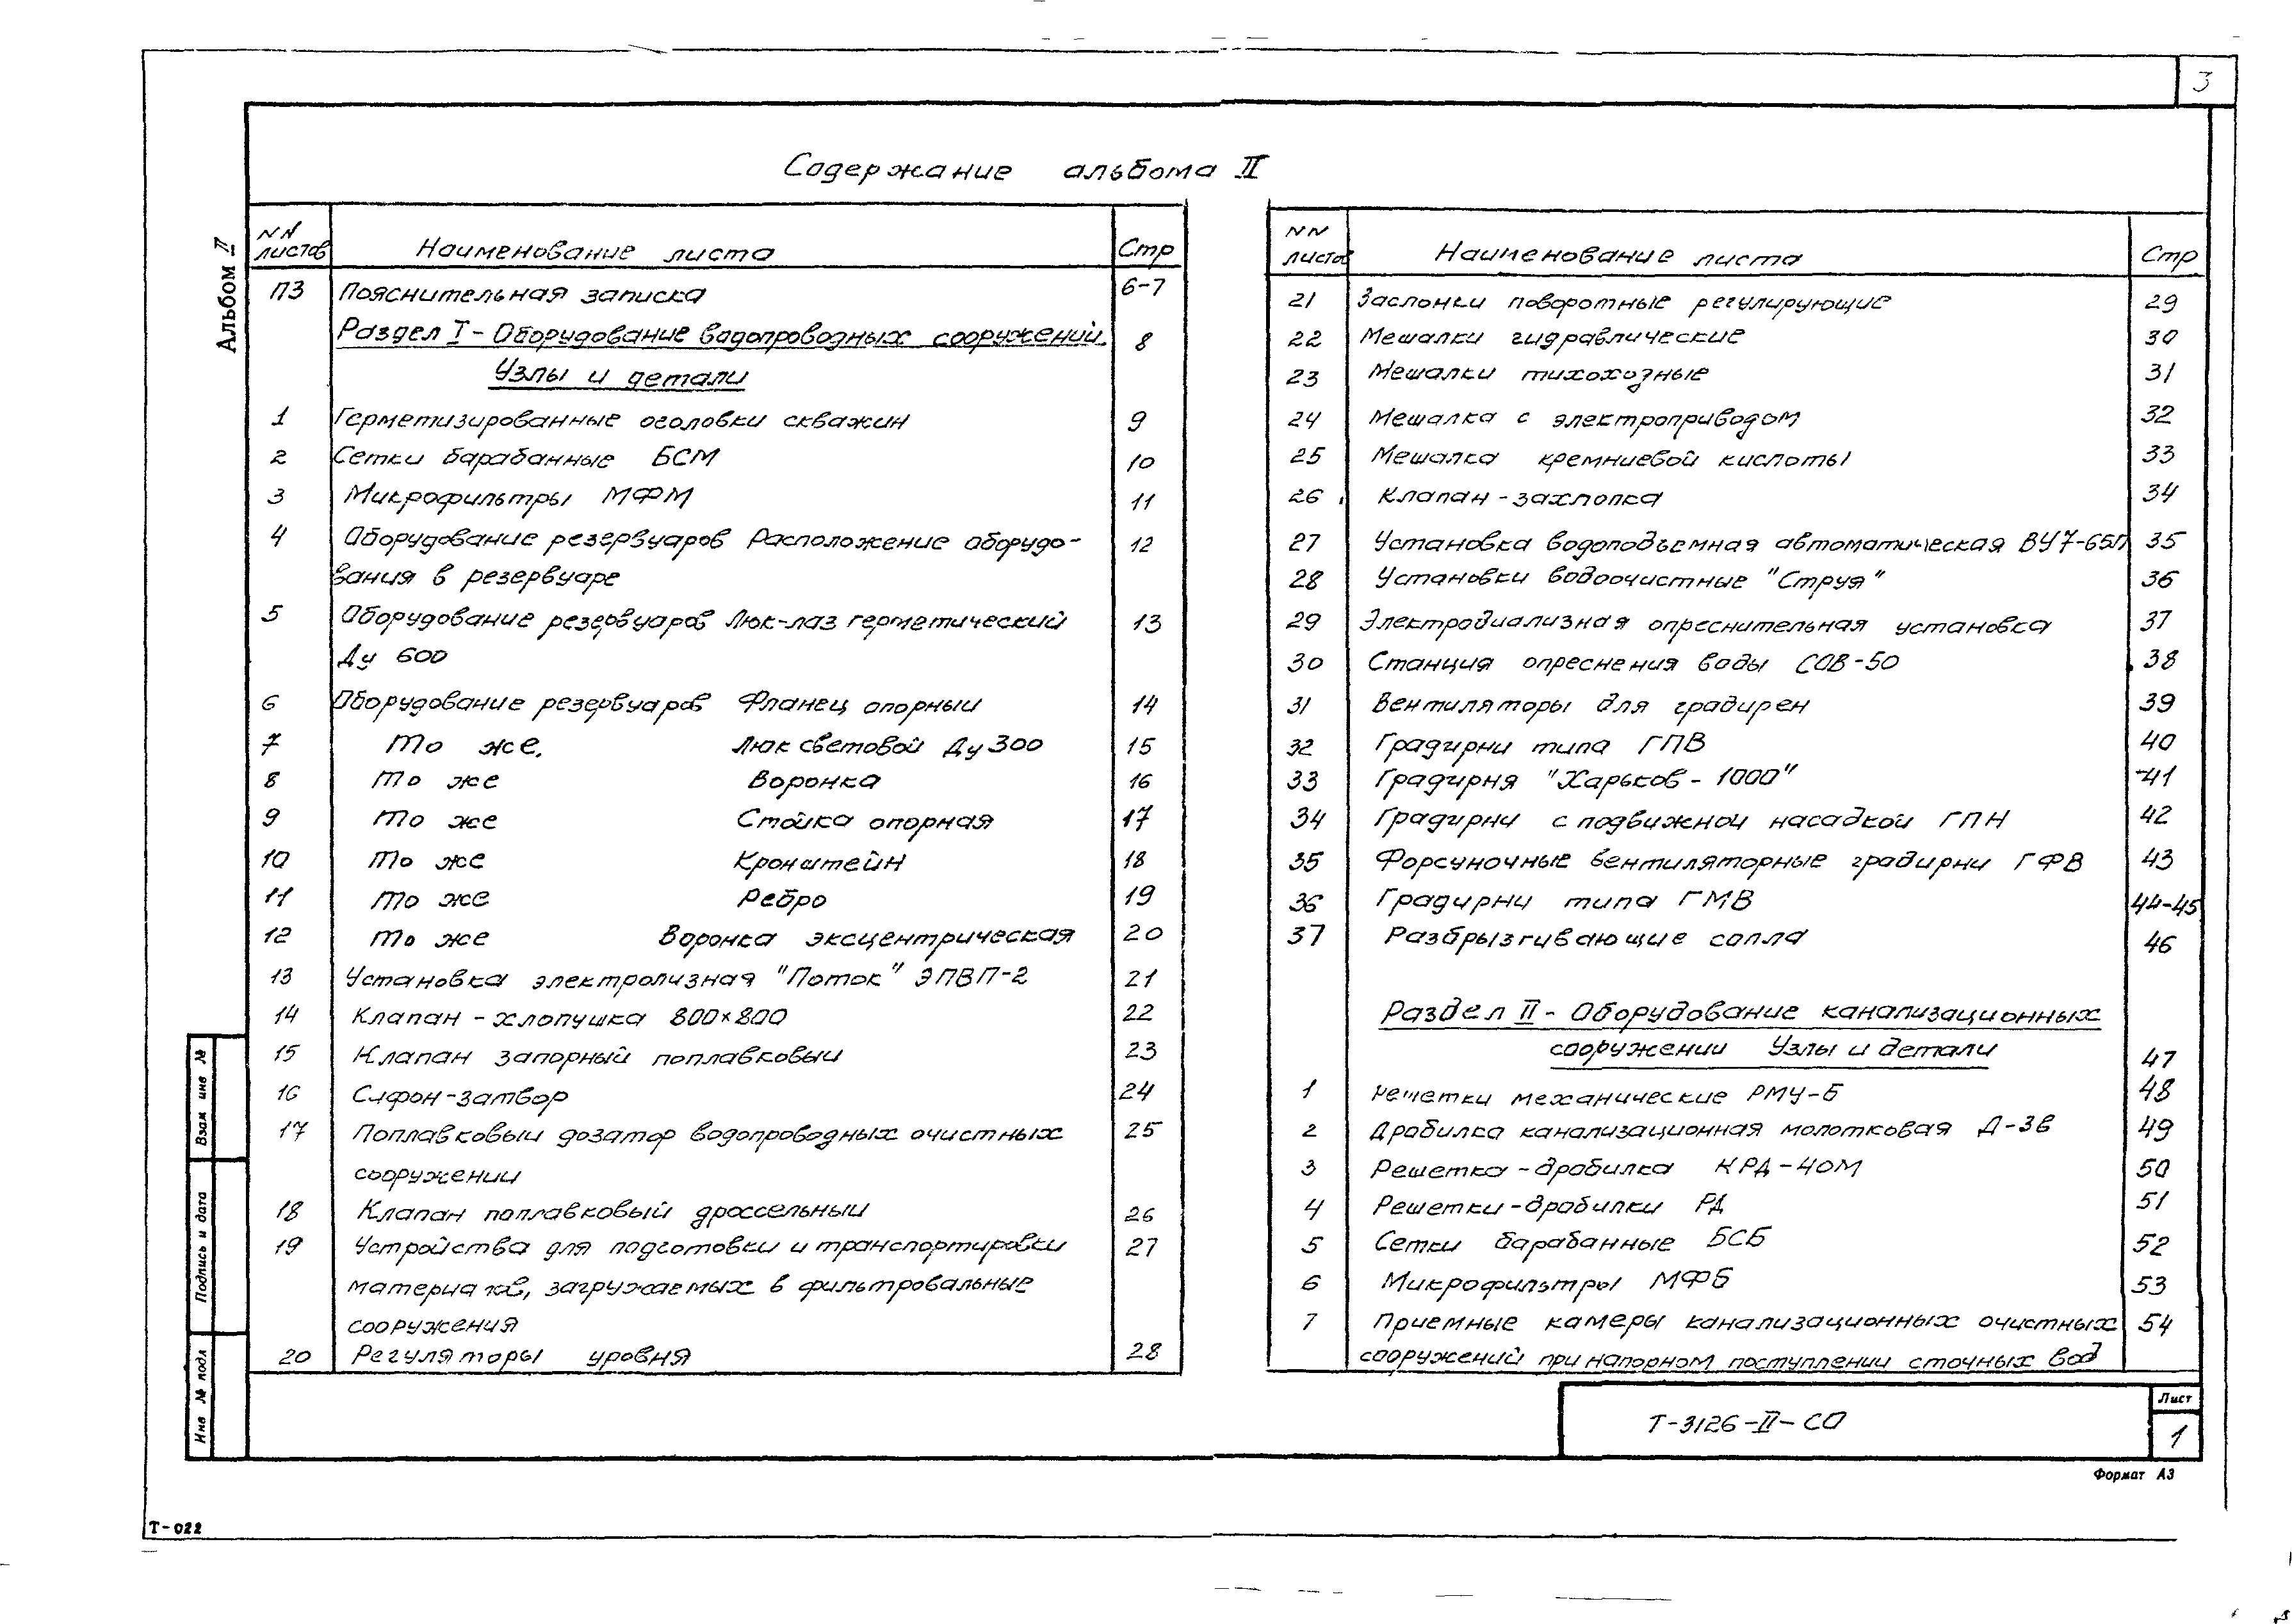 3
Содержание альбома II
Альбом II
NN листов Наименование листа Стр
ПЗ Пояснительная записка 6-7
Раздел I - Оборудование водопроводных сооружений. 8
Узлы и детали
1 Герметизированные оголовки скважин 9
2 Сетки барабанные БСМ 10
3 Микрофильтры МФМ 11
4 Оборудование резервуаров Расположение оборудо- 12
вания в резервуаре
5 Оборудование резервуаров Люк-лаз герметический 13
Ду 600
6 Оборудование резервуаров Фланец опорный 14
7 То же. Люк световой Ду 300 15
8 То же Воронка 16
9 То же Стойка опорная 17
10 То же Кронштейн 18
11 То же Ребро 19
12 То же Воронка эксцентрическая 20
13 Установка электролизная "Поток" ЭПВП-2 21
14 Клапан - хлопушка 800×800 22
15 Клапан запорный поплавковый 23
16 Сифон-затвор 24
17 Поплавковый дозатор водопроводных очистных 25
сооружений
18 Клапан поплавковый дроссельный 26
19 Устройства для подготовки и транспортировки 27
материалов, загружаемых в фильтровальные
сооружения
20 Регуляторы уровня 28
NN листов Наименование листа Стр
21 Заслонки поворотные регулирующие 29
22 Мешалки гидравлические 30
23 Мешалки тихоходные 31
24 Мешалка с электроприводом 32
25 Мешалка кремниевой кислоты 33
26 Клапан - захлопка 34
27 Установка водоподъемная автоматическая ВУ7-65П 35
28 Установки водоочистные "Струя" 36
29 Электродиализная опреснительная установка 37
30 Станция опреснения воды СОВ-50 38
31 Вентиляторы для градирен 39
32 Градирни типа ГПВ 40
33 Градирня "Харьков - 1000" 41
34 Градирни с подвижной насадкой ГПН 42
35 Форсуночные вентиляторные градирни ГФВ 43
36 Градирни типа ГМВ 44-45
37 Разбрызгивающие сопла 46
Раздел II - Оборудование канализационных
сооружений Узлы и детали 47
1 Решетки механические РМУ-Б 48
2 Дробилка канализационная молотковая Д-3в 49
3 Решетка - дробилка КРД-40М 50
4 Решетки-дробилки РД 51
5 Сетки барабанные БСБ 52
6 Микрофильтры МФБ 53
7 Приемные камеры канализационных очистных 54
сооружений при напорном поступлении сточных вод
Взам инв №
Подпись и дата
Инв № подл
Т-3126-II-СО
Лист
1
Формат А3
Т-022